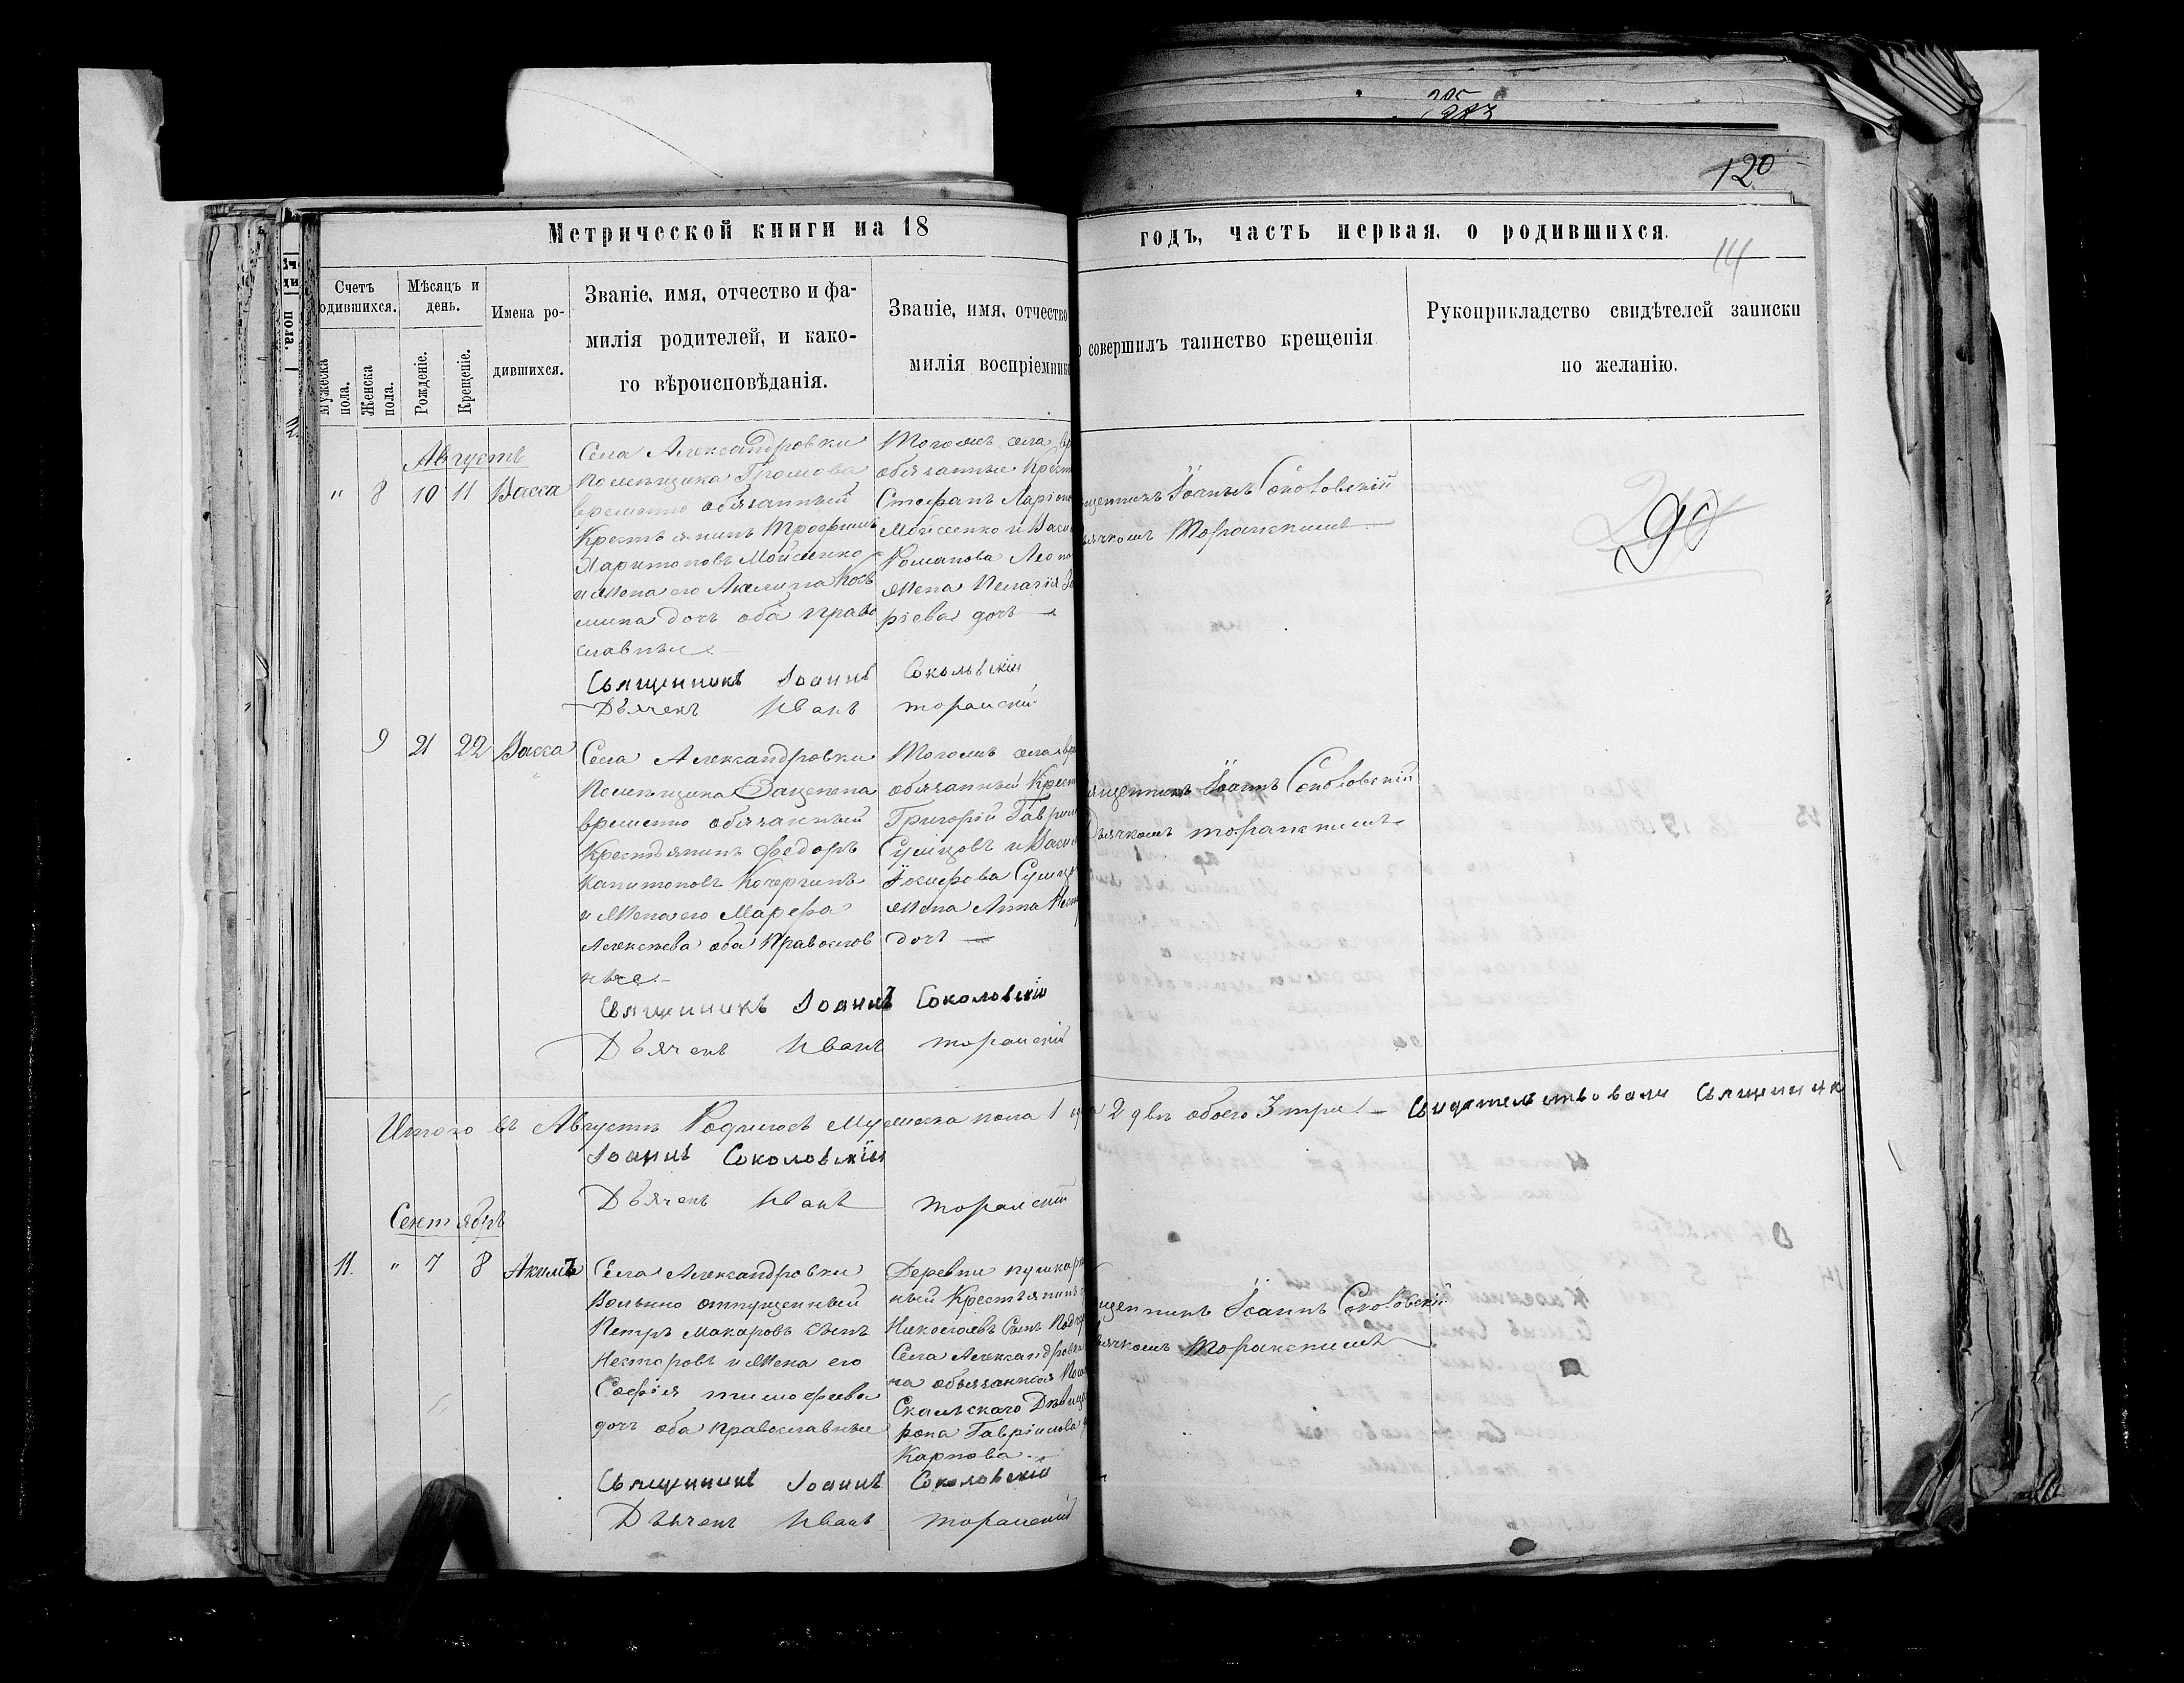 205
120
Метрической книги на 18
годъ, часть первая, о родившихся.
14
Счетъ
одившихся.
Мужеска
пола.
Женска
пола.
Мѣсяцъ и
день.
Рожденіе.
Крещеніе.
Имена ро-
дившихся.
Званіе, имя, отчество и фа-
милія родителей, и како-
го вѣроисповѣданія.
Званіе, имя, отчество
милія воспріемник
совершилъ таинство крещенія.
Рукоприкладство свидѣтелей записки
по желанію.
Августъ
" 8 10 11 Васса
Села Александровки
помѣщика Громова
временно обязанный
Крестьянинъ Трофимъ
Харитоновъ Мойсенко
и жена его Акилина Косъ
мина дочъ оба право
славные.
Тогожъ села вр
обязанные Крест
Стефанъ Ларіон
Мойсенко и Васи
Романова
жена Пелагія
ріева дочъ
щенникъ Іоаннъ Соколовскій
ьячкомъ Торанскимъ
90
Священникъ Іоаннъ Соколовскій
Дьячекъ Иванъ Торанскій
9 21 22 Васса
Села Александровки
Помѣщика Зацепена
временно обязанный
Крестьянинъ Федоръ
Капитоновъ Кочергинъ
и жена его Марфа
Алексѣева оба Православ
ные.
Тогожъ села вр
обязанный Крест
Григорій Гаврил
Сумцовъ и Васи
Іосифова Сумц
жена Анна
дочъ
ященникъ Іоаннъ Соколовскій
Дьячкомъ Торанскимъ
Священникъ Іоаннъ Соколовскій
Дьячекъ Иванъ Торанскій
Итого въ Августѣ Родилось Мужеска пола 1 2 двѣ обоего 3 три. Свидѣтельствовали Священник
Іоаннъ Соколовскій
Дьячекъ Иванъ Торанскій
Сентябрь
11. " 7 8 Акимъ
Села Александровки
Вольно отпущенный
Петръ Макаровъ сынъ
Несторовъ и жена его
Софія тимофеева
дочъ оба православные
Деревни пушкар
ный Крестьянинъ
Николаевъ Сынъ
Села Александровки
на обязанная
Скальскаго Дѣвица
рона Гавріилова
Карпова.
щенникъ Іоаннъ Соколовскій
ьячкомъ Торанскимъ
Священникъ Іоаннъ Соколовскій
Дьячекъ Иванъ Торанскій